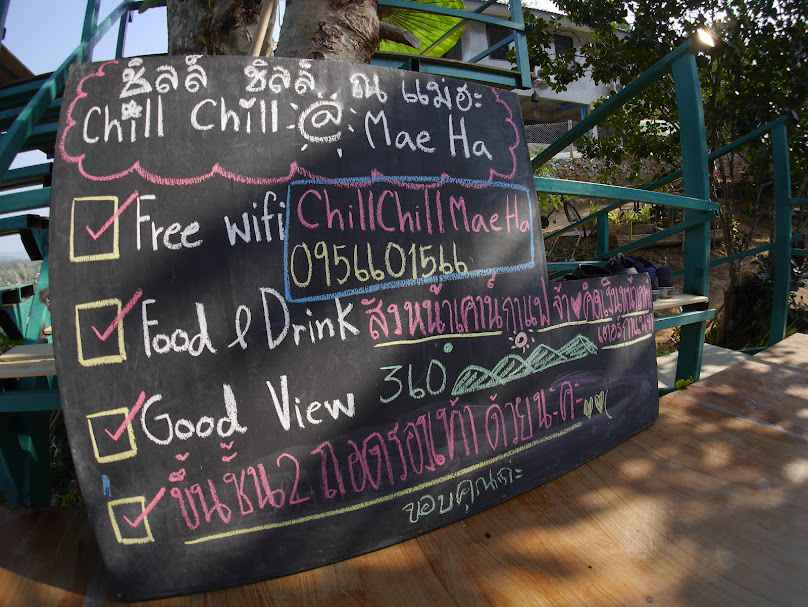 ชิลล์ ชิลล์ ณ แม่ฮะ
Chill Chill @ Mae Ha
Free wifi ChillChillMaeHa
0956601566
Food & Drink สั่งหน้าเคาน์เตอร์กาแฟ จ้า
Good View 360°
ขึ้นชั้น2 ถอดรองเท้า ด้วยนะคะ
ขอบคุณค่ะ